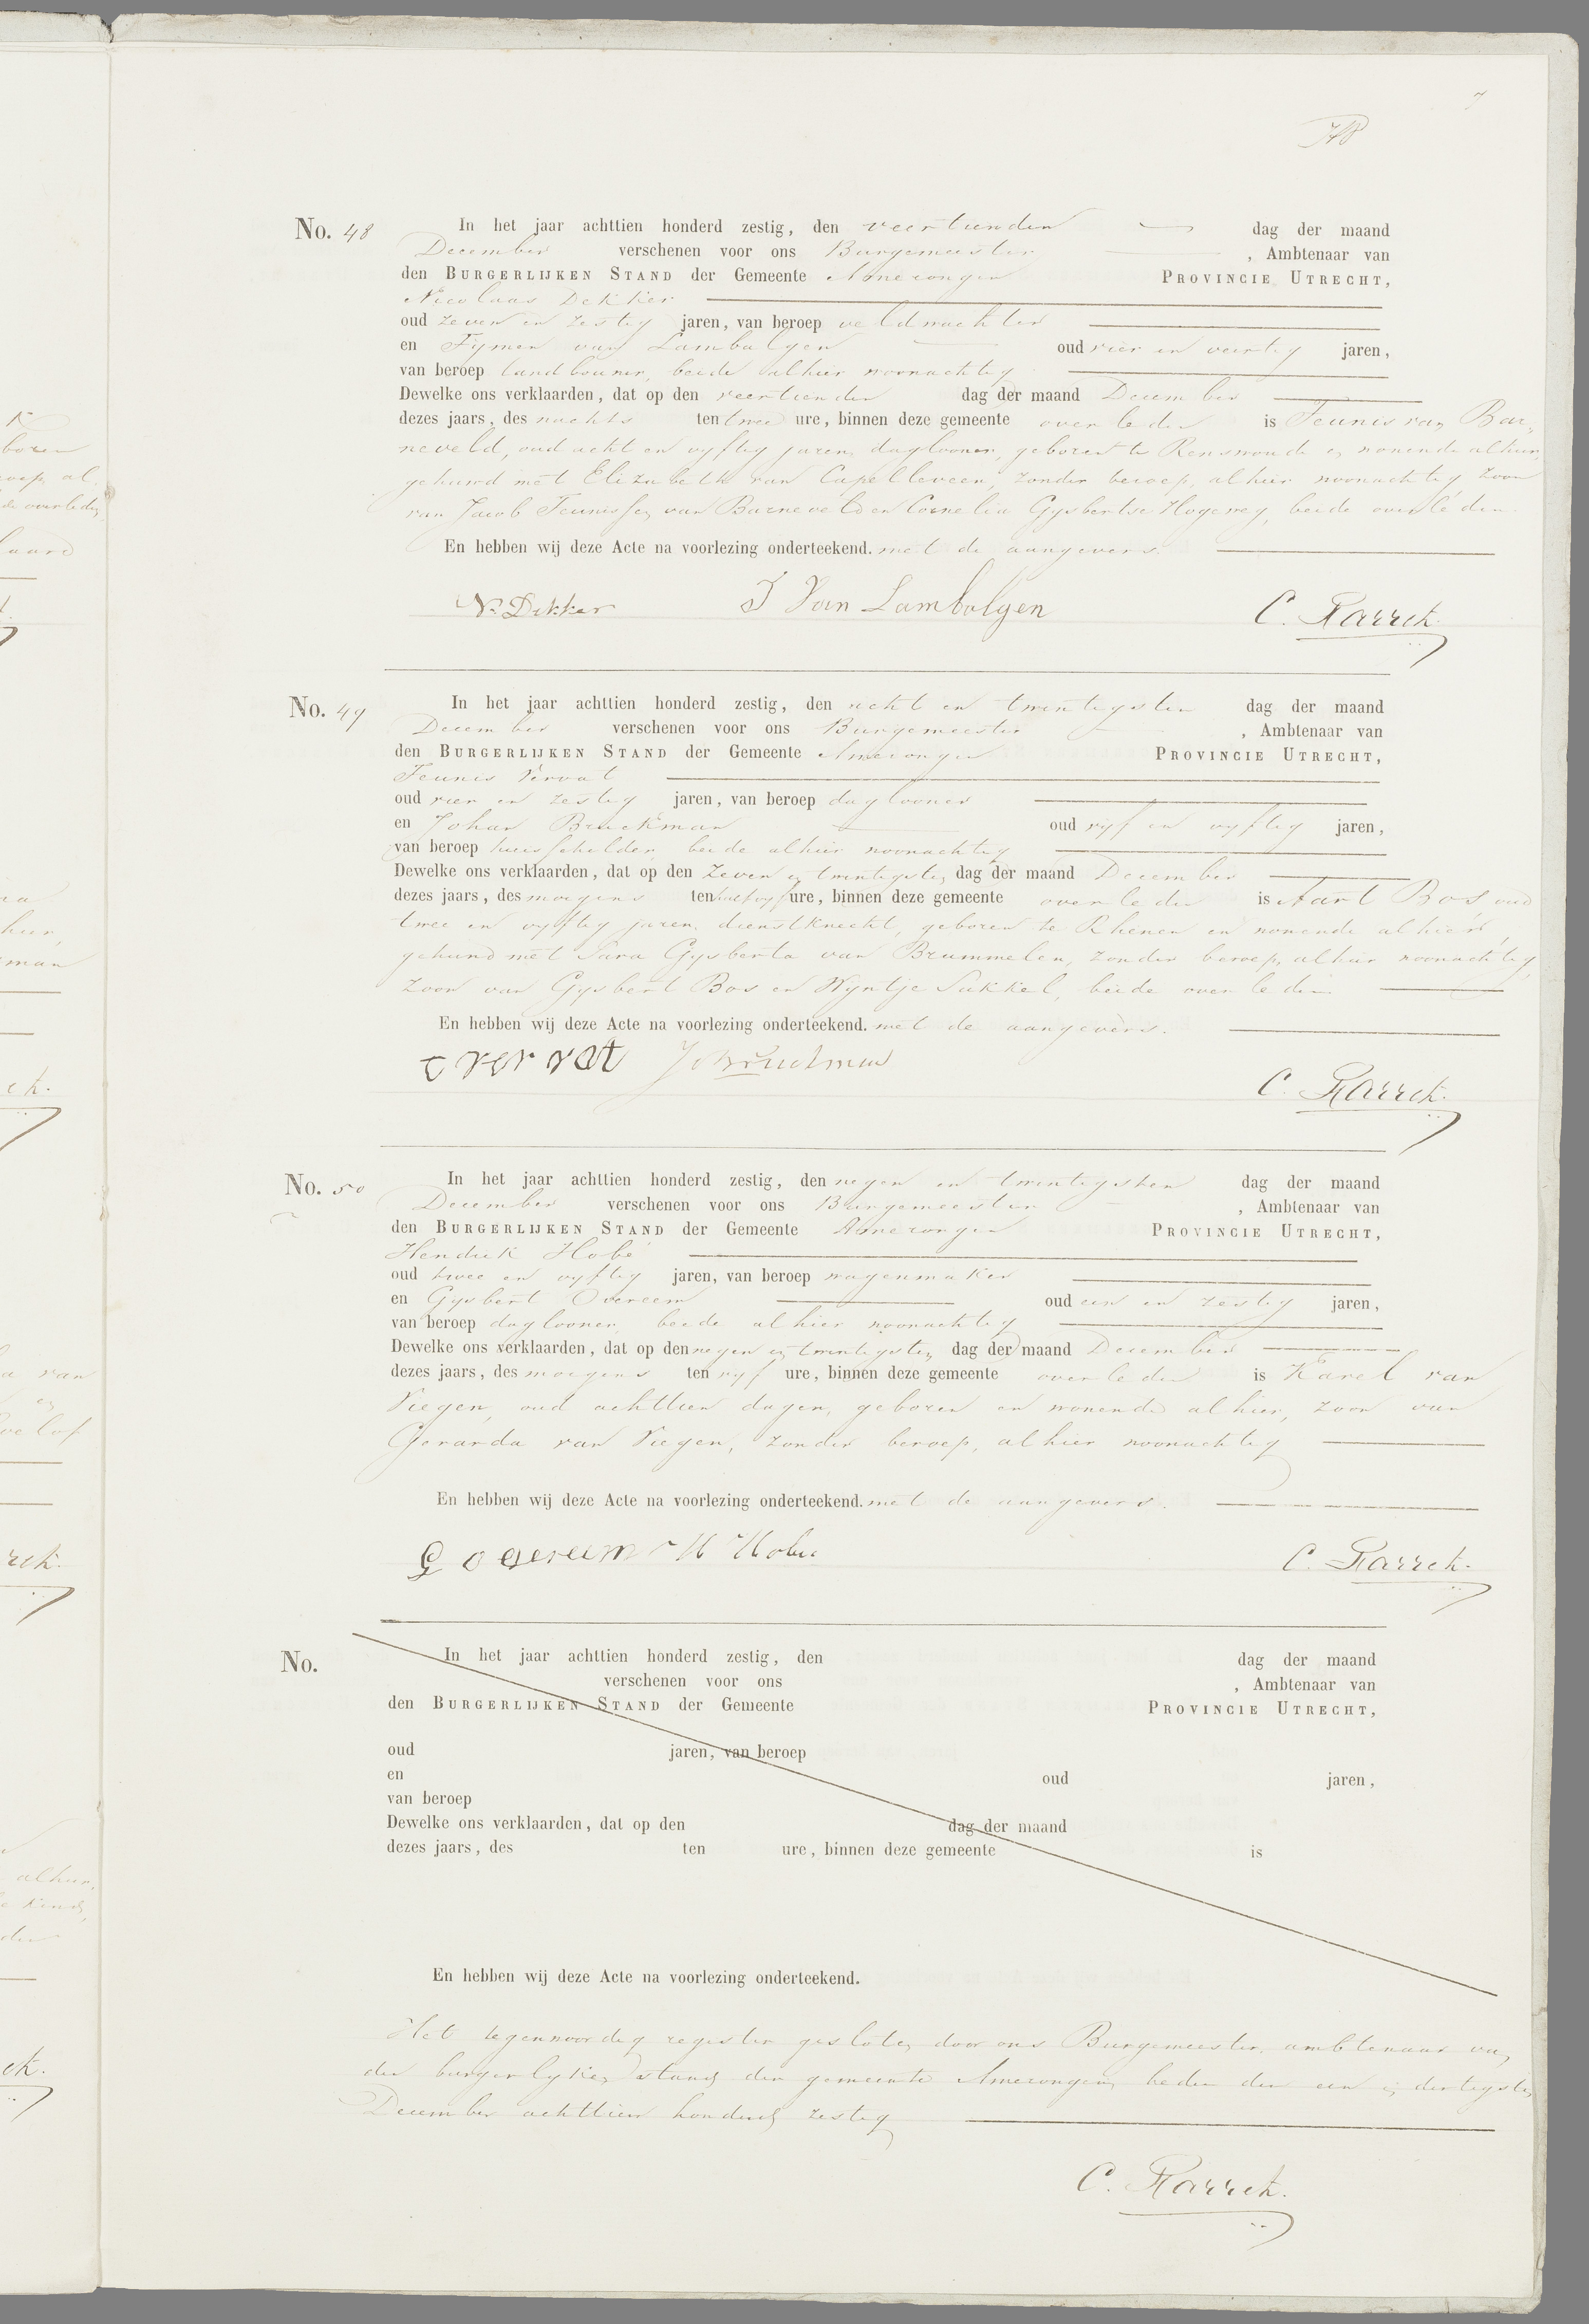 7
No. 48 In het jaar achttien honderd zestig, den veertienden dag der maand
December verschenen voor ons Burgemeester , Ambtenaar van
den BURGERLIJKEN STAND der Gemeente Amerongen PROVINCIE UTRECHT,
Nicolaas Dekker
oud zeven en zestig jaren, van beroep veldwachter
en Tymen van Lambalgen oud vier en veertig jaren,
van beroep landbouwer, beide alhier woonachtig
Dewelke ons verklaarden, dat op den veertienden dag der maand December
dezes jaars, des nachts ten twee ure, binnen deze gemeente overleden is Teunis van Bar-
neveld, oud acht en vyftig jaren, daglooner, geboren te Renswoude en wonende alhier,
gehuwd met Elizabeth van Capelleveen, zonder beroep, alhier woonachtig zoon
van Jacob Teunissen van Barneveld en Cornelia Gysbertse Hogeweg, beide overleden.
En hebben wij deze Acte na voorlezing onderteekend. met de aangevers.
N. Dekker T Van Lambalgen C. Karrek.
No. 49 In het jaar achttien honderd zestig, den acht en twintigsten dag der maand
December verschenen voor ons Burgemeester , Ambtenaar van
den BURGERLIJKEN STAND der Gemeente Amerongen PROVINCIE UTRECHT,
Teunis Vervat
oud vier en zestig jaren, van beroep daglooner
en Johan Bruckman oud vyf en vyftig jaren,
van beroep huisschilder, beide alhier woonachtig
Dewelke ons verklaarden, dat op den zeven en twintigsten dag der maand December
dezes jaars, des morgens ten half vyf ure, binnen deze gemeente overleden is Aart Bos oud
twee en vyftig jaren, dienstknecht, geboren te Rhenen en wonende alhier,
gehuwd met Sara Gysberta van Brummelen, zonder beroep, alhier woonachtig,
zoon van Gysbert Bos en Wyntje Sukkel, beide overleden.
En hebben wij deze Acte na voorlezing onderteekend. met de aangevers.
T vervat J Bruckman
C. Karrek.
No. 50 In het jaar achttien honderd zestig, den negen en twintigsten dag der maand
December verschenen voor ons Burgemeester , Ambtenaar van
den BURGERLIJKEN STAND der Gemeente Amerongen PROVINCIE UTRECHT,
Hendrik Hobé
oud twee en vyftig jaren, van beroep wagenmaker
en Gysbert Overeem oud een en zestig jaren,
van beroep daglooner, beide alhier woonachtig
Dewelke ons verklaarden, dat op den negen en twintigsten dag der maand December
dezes jaars, des morgens ten vyf ure, binnen deze gemeente overleden is Karel van
Viegen, oud achttien dagen, geboren en wonende alhier, zoon van
Gerarda van Viegen, zonder beroep, alhier woonachtig
En hebben wij deze Acte na voorlezing onderteekend. met de aangevers.
G overeem H Hobé C. Karrek.
No. In het jaar achttien honderd zestig, den dag der maand
verschenen voor ons , Ambtenaar van
den BURGERLIJKEN STAND der Gemeente PROVINCIE UTRECHT,
oud jaren, van beroep
en oud jaren,
van beroep
Dewelke ons verklaarden, dat op den dag der maand
dezes jaars, des ten ure, binnen deze gemeente is
En hebben wij deze Acte na voorlezing onderteekend.
Het tegenwoordig register gesloten door ons Burgemeester, ambtenaar van
den burgerlyken stand der gemeente Amerongen, heden den een en dertigsten
December achttien honderd zestig
C. Karrek.